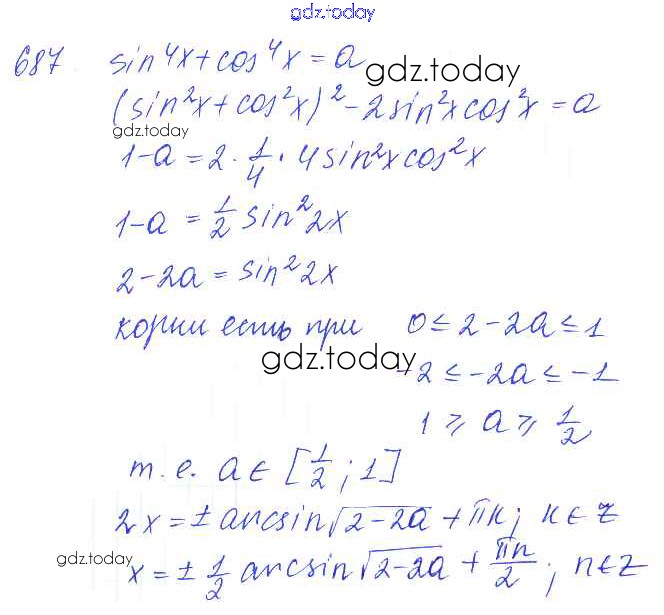 gdz.today
687. sin⁴x + cos⁴x = a
gdz.today
(sin²x + cos²x)² - 2sin²x cos²x = a
gdz.today
1-a = 2 · 1/4 · 4sin²x cos²x
1-a = 1/2 sin²2x
2-2a = sin²2x
корни есть при 0 ≤ 2-2a ≤ 1
gdz.today
-2 ≤ -2a ≤ -1
1 ≥ a ≥ 1/2
т.е. a ∈ [1/2; 1]
2x = ± arcsin√(2-2a) + πk; k ∈ Z
gdz.today
x = ± 1/2 arcsin√(2-2a) + πn/2; n ∈ Z